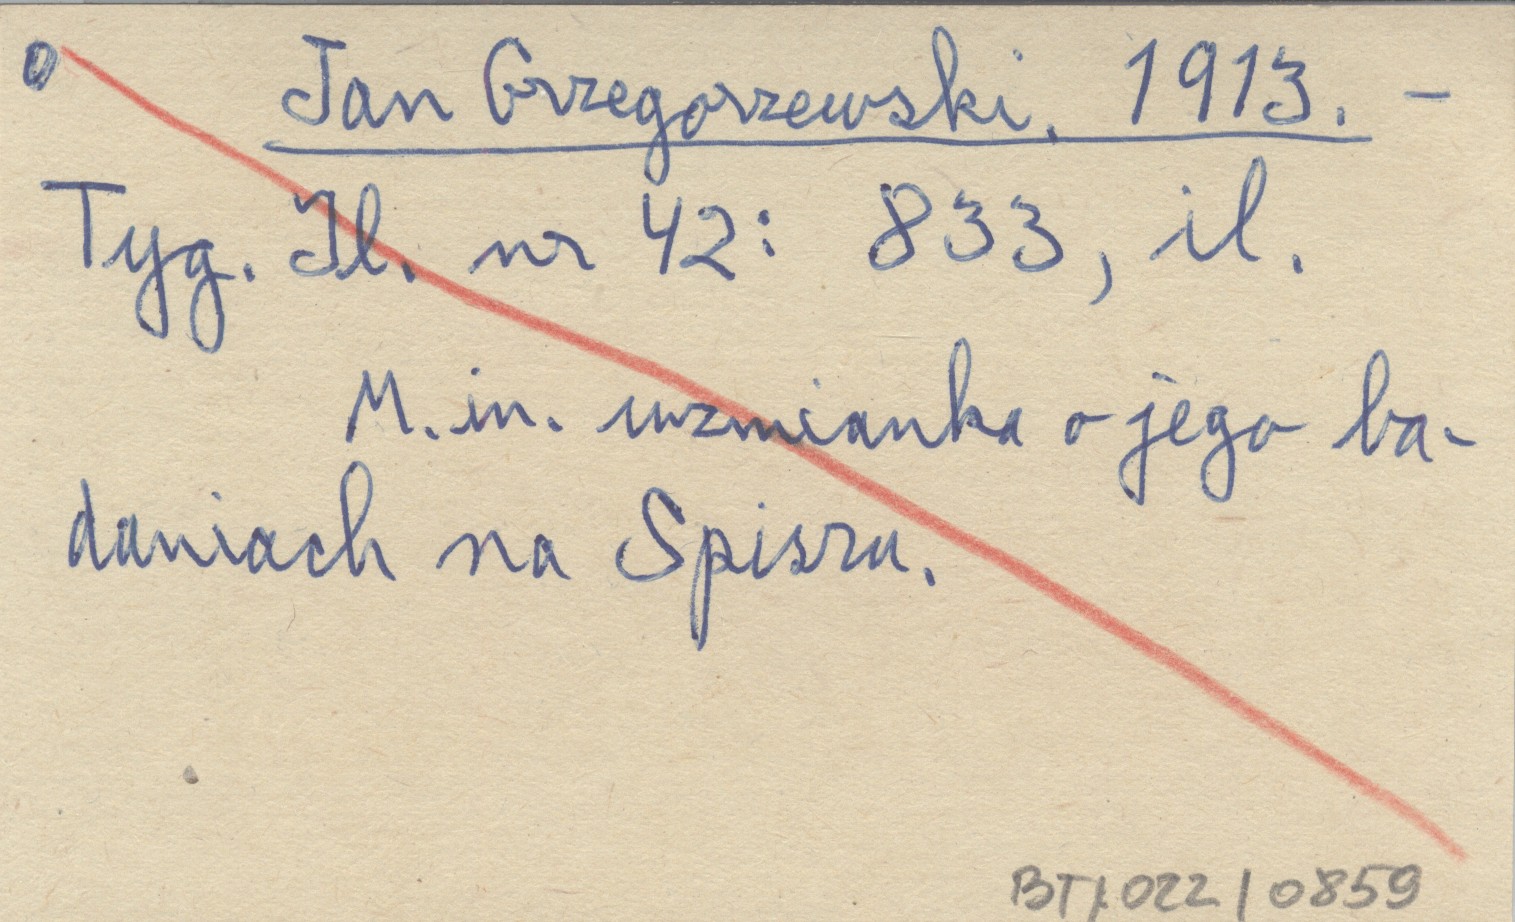 o Jan Grzegorzewski. 1913. -
Tyg. Il. nr 42: 833, il.
M. in. wzmianka o jego ba-
daniach na Spiszu.
BT/022/0859